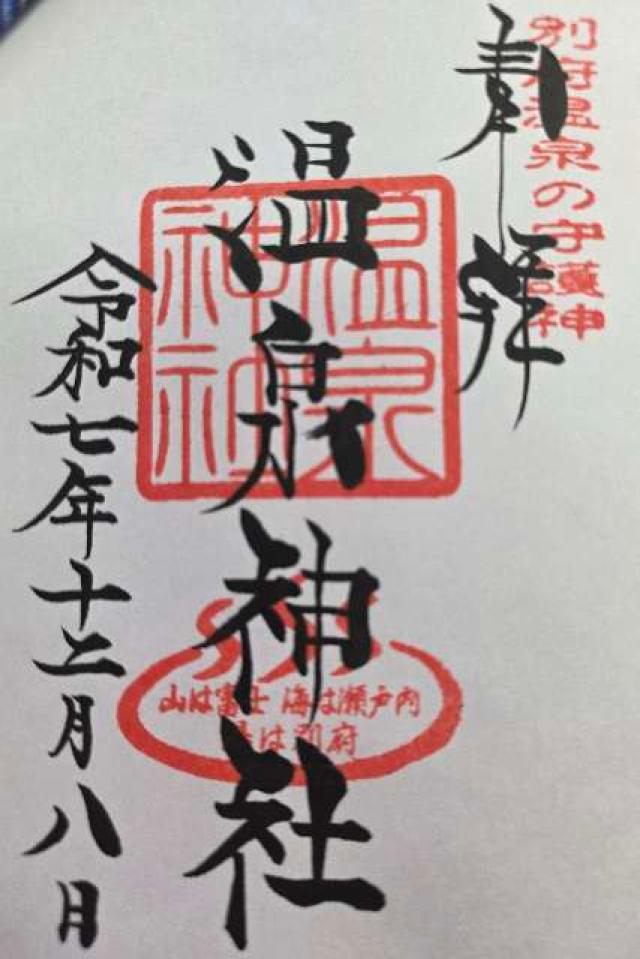 別府温泉の守護神
奉拝
温泉神社
温泉
神社
山は富士 海は瀬戸内
湯は別府
令和七年十二月八日